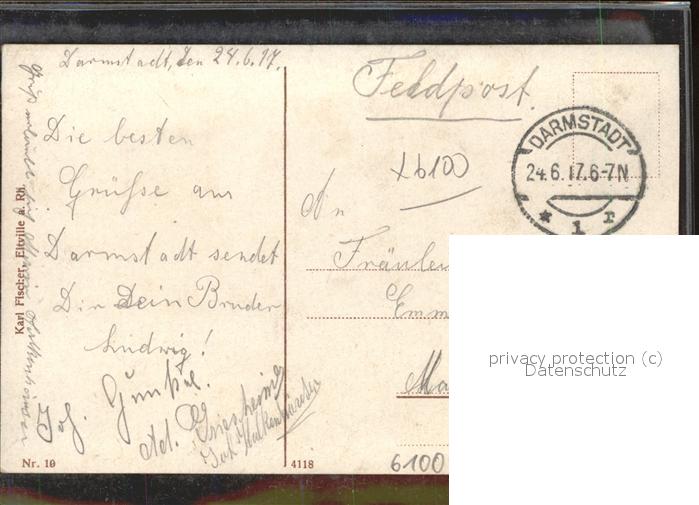 Darmstadt, den 24.6.17.
Die besten
Grüße aus
Darmstadt sendet
Dir Dein Bruder
Ludwig!
Joh. Gunkel.
Ad. Griesheimer
Feldpost.
DARMSTADT
24.6.17.6-7N
* 1
xb100
An
Fräulein
Emm
Ma
6100
Karl Fischer, Eltville a. Rh.
Nr. 10
4118
privacy protection (c)
Datenschutz